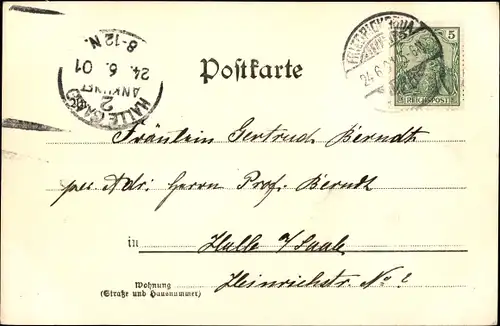 Postkarte
5
REICHSPOST
24.6.01
8-12 N.
24. 6. 01
ANKUNFT
2
HALLE (SAALE)
Fräulein Gertrud Berndt
per Adr: Herrn Prof. Berndt
in Halle a/Saale
Heinrichstr. No
Wohnung
(Straße und Hausnummer)